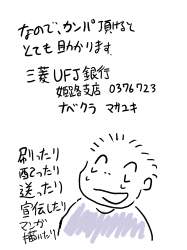 なので、カンパ頂けると
とても助かります。
三菱UFJ銀行
姫路支店 0376723
ナベクラ マサユキ
刷ったり
配ったり
送ったり
宣伝したり
マンガ
描いたり